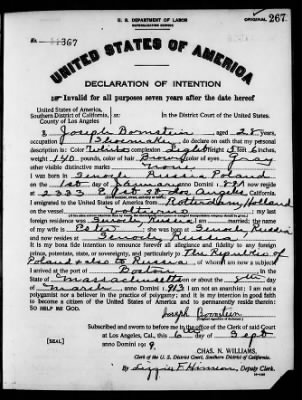 U. S. DEPARTMENT OF LABOR
NATURALIZATION SERVICE
ORIGINAL 267
No. 11367
UNITED STATES OF AMERICA
DECLARATION OF INTENTION
Invalid for all purposes seven years after the date hereof
United States of America,
Southern District of California, ss:
County of Los Angeles
In the District Court of the United States.
I, Joseph Bornstein, aged 28 years,
occupation Shoemaker, do declare on oath that my personal
description is: Color White, complexion Light, height 5 feet 6 inches,
weight 140 pounds, color of hair Brown, color of eyes Gray
other visible distinctive marks none
I was born in Russia Poland
on the 1st day of January, anno Domini 1891; I now reside
at 2333 E 1st St Los Angeles, California
I emigrated to the United States of America from Rotterdam, Holland
on the vessel Volturno; my last
foreign residence was Russia; I am married; the name
of my wife is Ester; she was born at Russia
and now resides at Russia
It is my bona fide intention to renounce forever all allegiance and fidelity to any foreign
prince, potentate, state, or sovereignty, and particularly to The Republic of
Poland & also to Russia, of whom I am now a subject;
I arrived at the port of Boston, in the
State of Massachusetts, on or about the day
of March, anno Domini 1913; I am not an anarchist; I am not a
polygamist nor a believer in the practice of polygamy; and it is my intention in good faith
to become a citizen of the United States of America and to permanently reside therein:
SO HELP ME GOD.
Joseph Bornstein
Subscribed and sworn to before me in the office of the Clerk of said Court
at Los Angeles, Cal., this 6th day of Sept
anno Domini 1919.
CHAS. N. WILLIAMS,
Clerk of the U. S. District Court, Southern District of California.
By Deputy Clerk.